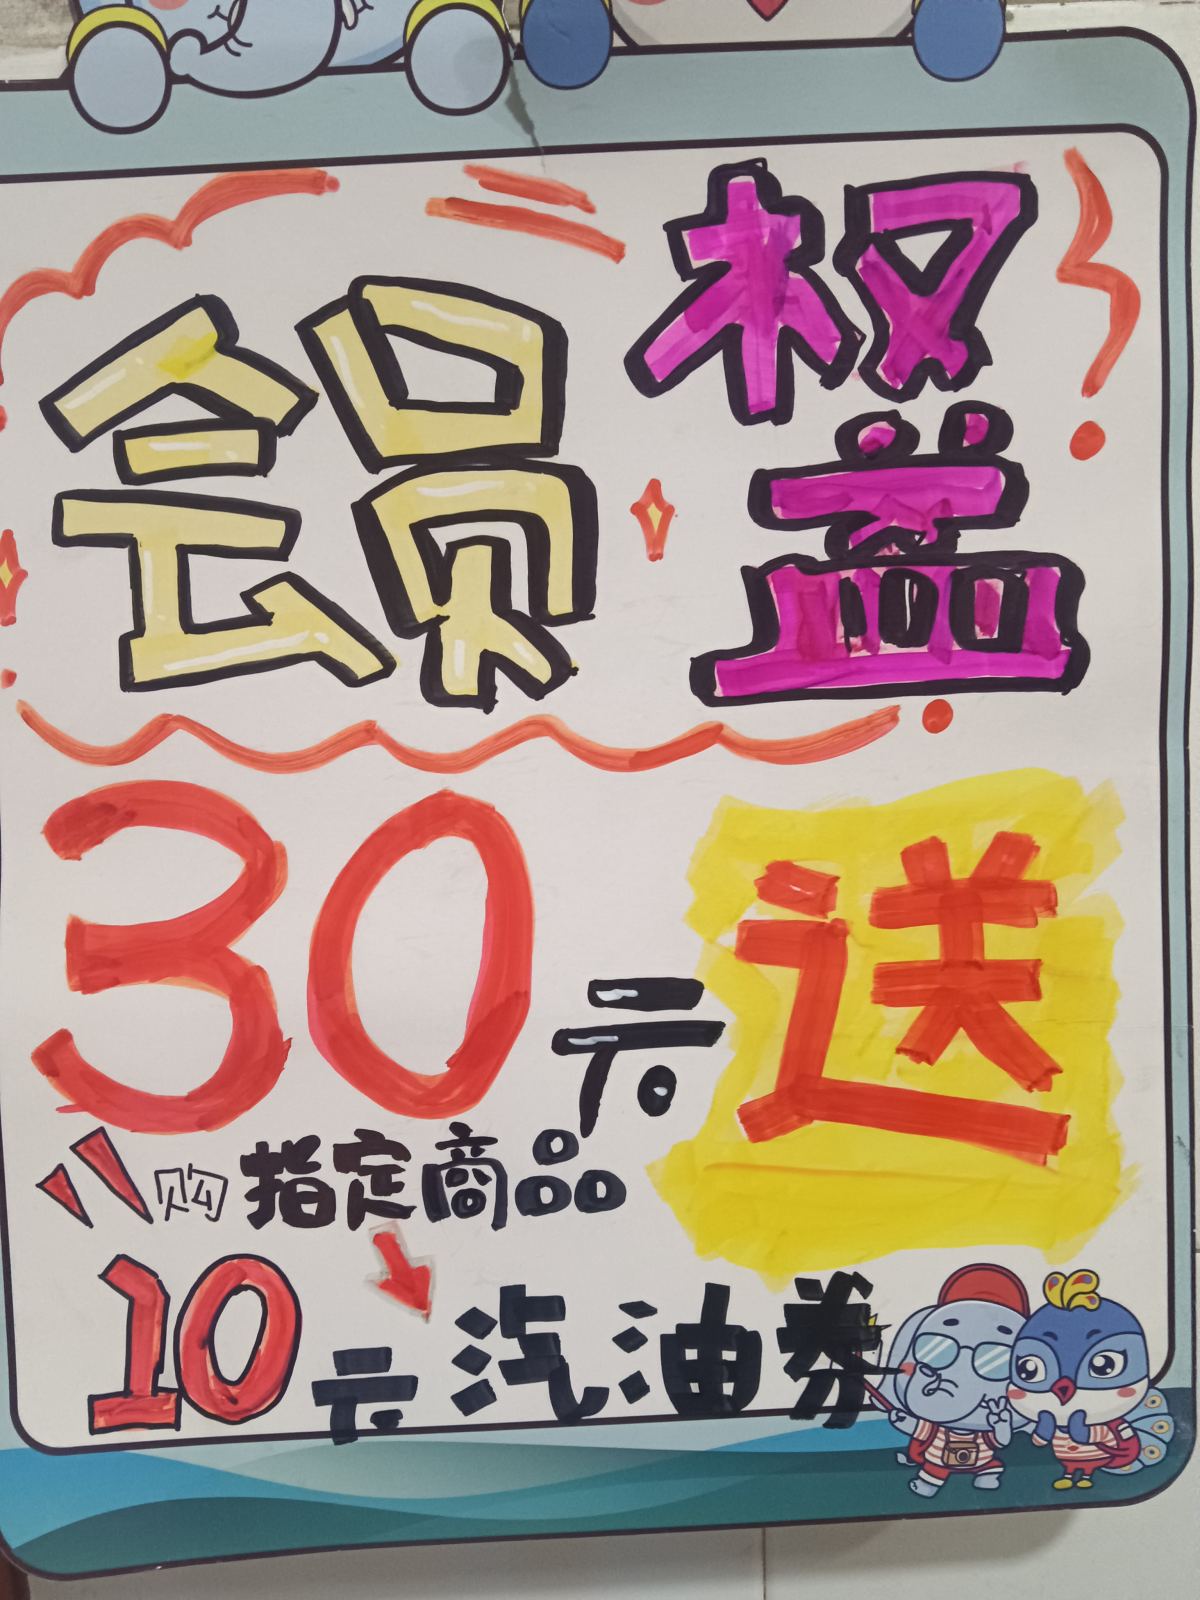 会员权益
30元送
购指定商品
10元汽油券